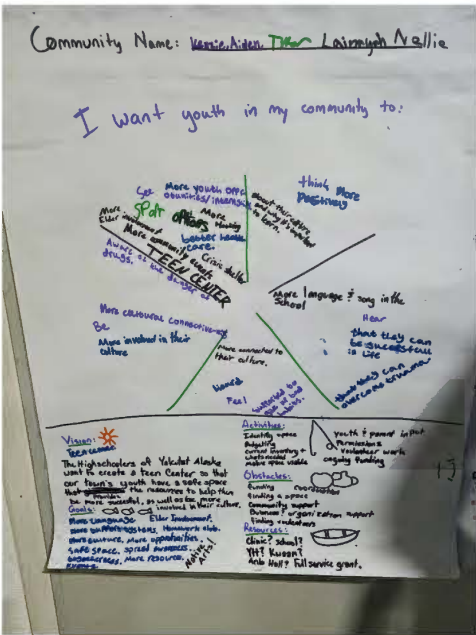 Community Name: Kassie, Aiden, Lainnyah Nellie
I want youth in my community to:
See
More youth opp-
ortunities/internships
Sport
options
More
better health
care.
Crisis shelter
More
Elder involvement
More community events
TEEN CENTER
Aware of the danger of
drugs.
about their culture
and why it's important
to learn.
think More
positively
More language & song in the
School
Hear
that they can
be successfull
in life
that they can
overcome trauma
More cultural connectiveness
Be
More involved in their
culture
More connected to
their culture.
Heard
Feel
habits.
Vision:
Teen center
The Highschoolers of Yakutat Alaska
want to create a teen Center so that
our town's youth have a safe space
that provides the resources to help them
be more sucessful, as well as be more
involved in their culture.
Goals:
More Language Elder Involvment.
More support systems, Homework club.
More culture, More opportunities.
safe space, spread awareness.
More resources.
events
Native Arts!
Activities:
Identify space
Budgeting
current inventory &
whats needed
make space usable
youth & parent input
Permissions
Volunteer work
ongoing funding
Obstacles:
funding coordination
finding a space
Community support
Buisness/organization support
finding
Resources:
Clinic? School?
YTT? Kwaan?
ANB Hall? Full service grant.